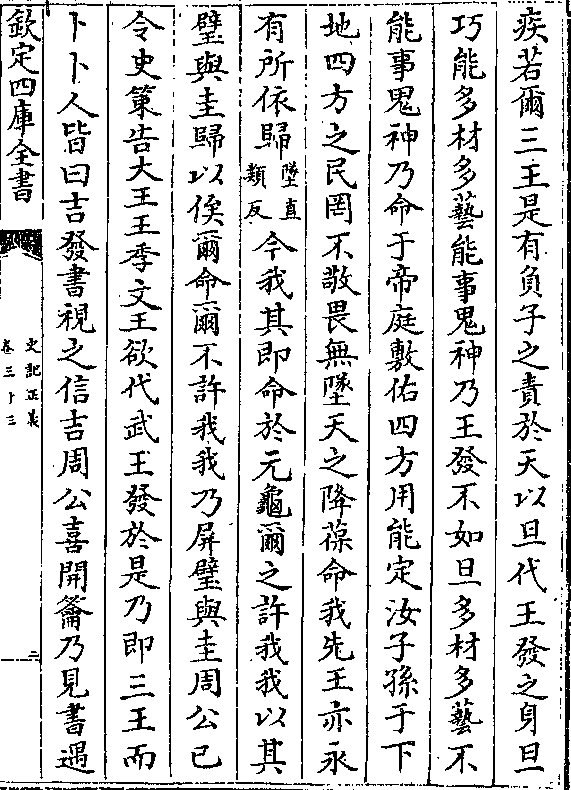 疾若爾三王是有負子之責於天以旦代王發之身旦
巧能多材多藝能事鬼神乃王發不如旦多材多藝不
能事鬼神乃命于帝庭敷佑四方用能定汝子孫于下
地四方之民罔不敬畏無墜天之降葆命我先王亦永
有所依歸墜直類反今我其即命於元龜爾之許我我以其
璧與圭歸以俟爾命爾不許我我乃屏璧與圭周公已
令史策告大王王季文王欲代武王發於是乃即三王而
卜卜人皆曰吉發書視之信吉周公喜開籥乃見書遇
欽定四庫全書
史記正義
卷三十三
三